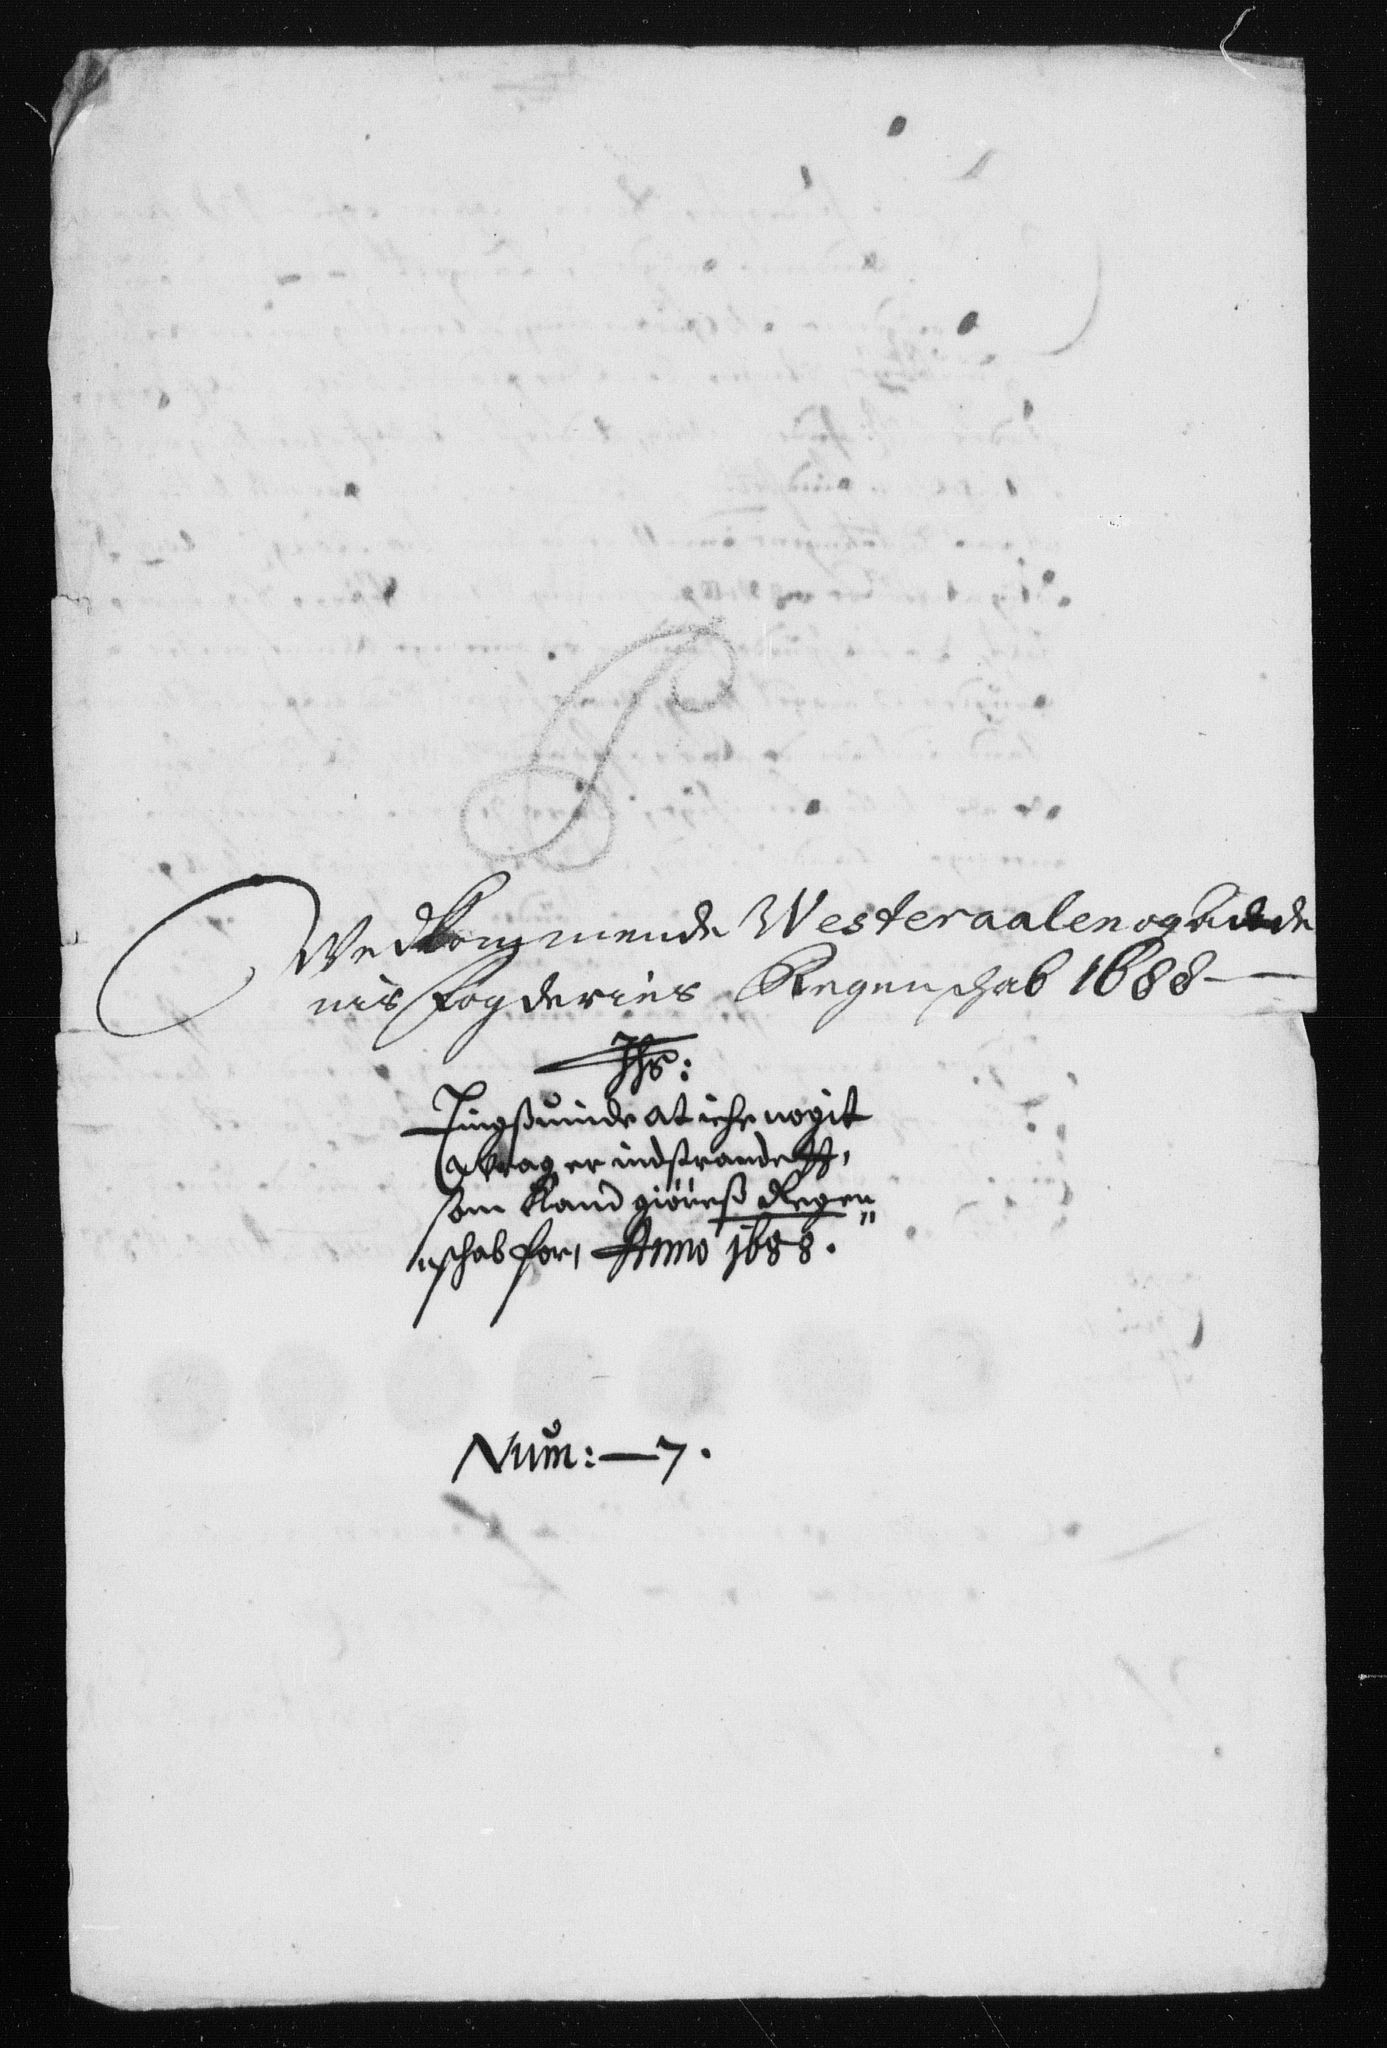 Vedkommende Westeraalen og Andde
nis fogderies Regenschab 1688
Jhs:
Tingßuinde at iche nogit
Wrag er indstrandett,
som Kand giöreß Regen
schab for, Anno 1688.
Num: — 7.